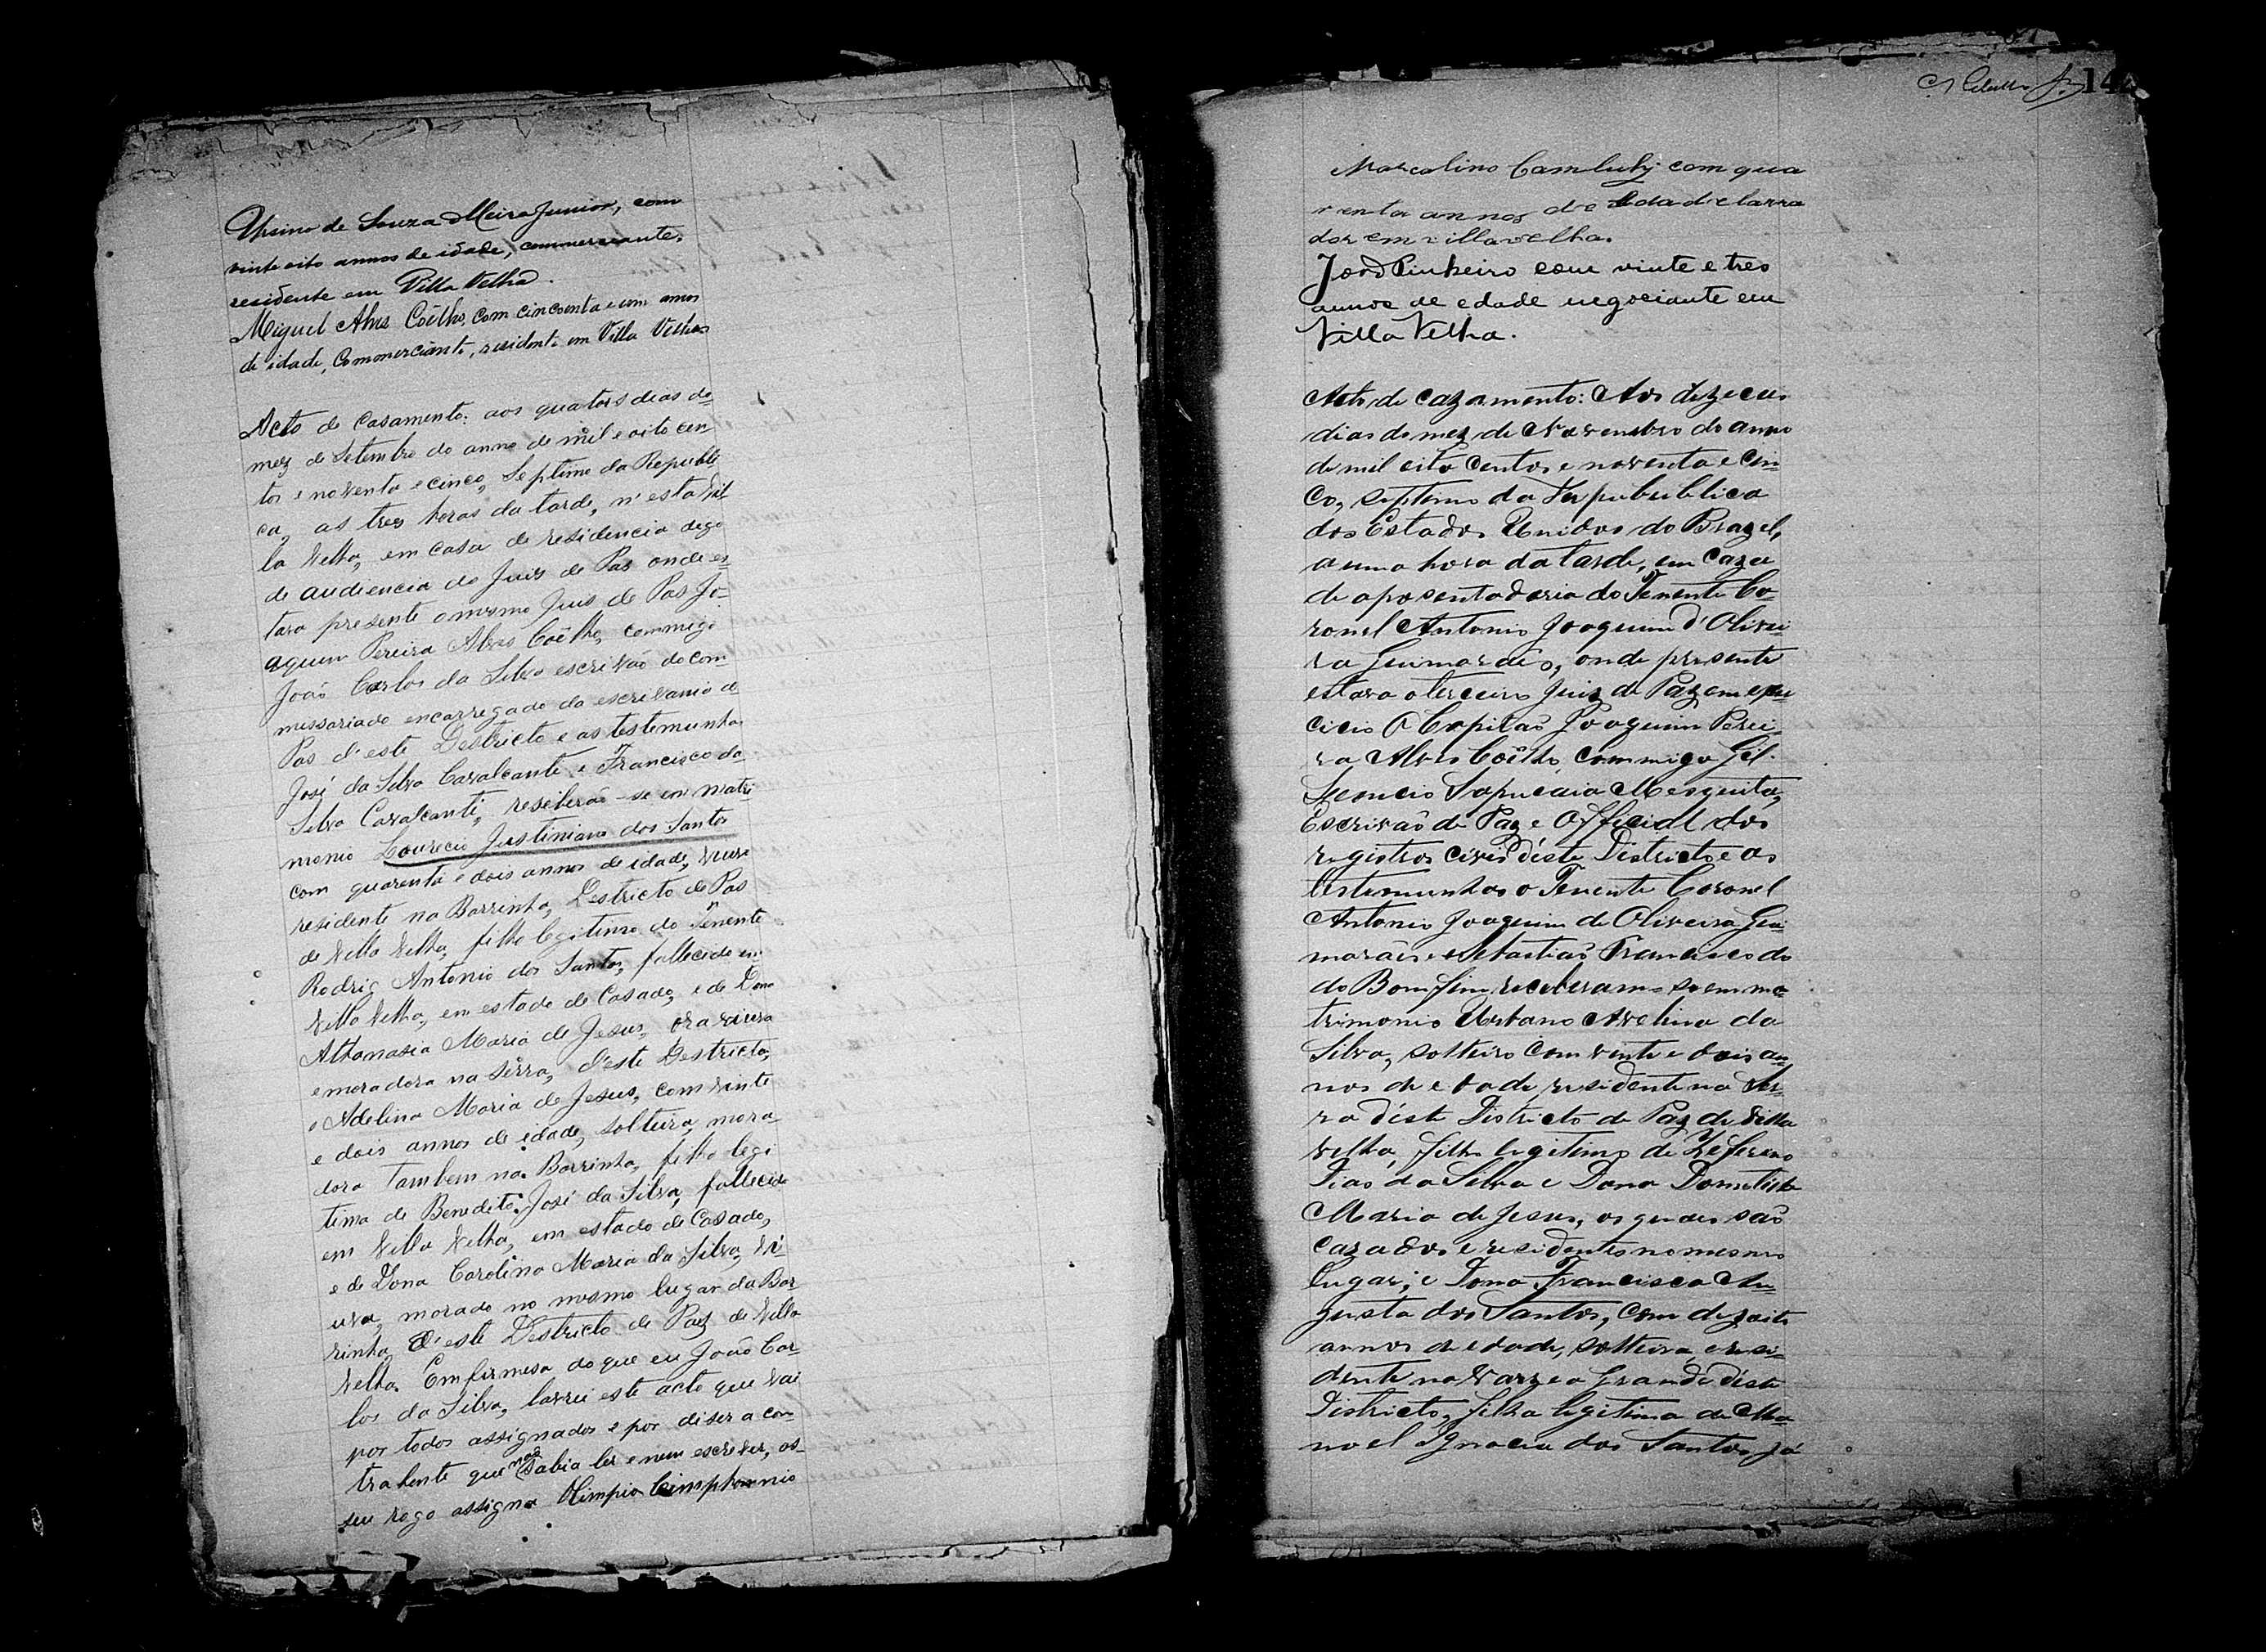 Ursino de Souza Meira Junior, com
vinte oito annos de idade, commerciante,
residente em Villa Velha.
Miguel Alves Coêlho, com cincoenta e um annos
de idade, Commerciante, residente em Villa Velha
Acto de Casamento: aos quators dias do
mez de Setembro do anno de mil e oito cen
tos e noventa e cinco, Septimo da Republi
ca, as tres horas da tarde, n'esta Vil
la Velha, em casa de residencia digo
de audiencia do Juis de Pas onde es
tava presente o mesmo Juis de Pas Jo-
aquim Pereira Alves Coêlho, commigo
João Carlos da Silva escrivão do com
missariado encarregado da escrivania de
Pas d'este Destricto e as testemunhas
José da Silva Cavalcante e Francisco da
Silva Cavalcanti, reseberão-se em matri
monio Justiniano dos Santos
com quarenta e dois annos de idade, viuvo
residente na Barrinha, Destricto de Pas
de Villa Velha, filho legitimo do Tenente
Rodrig Antonio dos Santos, fallecido em
Villa Velha, em estado de Casado, e de Dona
Athanasia Maria de Jesus, ora viuva
e moradora na Serra, d'este Destricto,
e Adelina Maria de Jesus, com vinte
e dois annos de idade, solteira, mora
dora tambem na Barrinha, filha legi
tima de Benedito José da Silva, fallecido
em Villa Velha, em estado de Casado,
e de Dona Carolina Maria da Silva, vi
uva, morado no mesmo lugar da Bar
rinha, d'este Destricto de Paz de Villa
Velha. Em firmesa do que eu João Car
los da Silva, lavrei este acto que vai
por todos assignados e por diser a con
trahente que não sabia ler e nem escrever, as-
seu rogo assigna Olimpio Cimphronio
14
Marcolino com qua
renta annos de edade lavra
dor em villa velha.
João Pinheiro com vinte e tres
annos de edade negociante em
Villa Velha.
Acto de cazamento: Aos dezeceis
dias do mez de Novembro do anno
de mil oito centos e noventa e cin
co, septimo da Republica
dos Estados Unidos do Brazel,
a uma hora da tarde, em caza
de aposentadoria do Tenente Co-
ronel Antonio Joaquim d'Olivei
ra Guimarães, onde presente
estava o terceiro Juiz de Paz em exer
cicio o Capitão Joaquim Perei-
ra Alves Coêlho, commigo Gil
Sapucaia Mesquita,
Escrivão de Paz e Official dos
registros civis d'este Districto e as
testemunhas o Tenente Coronel
Antonio Joaquim de Oliveira Gui
marães e Sebastião Francisco do
do Bomfim receberam-se em ma
trimonio Urbano Avelino da
Silva, solteiro com vinte e dois an-
nos de edade residente na Ser
ra d'este Districto de Paz de Villa
velha, filho legitimo de Zeferino
Dias da Silva e Dona
Maria de Jesus, os quaes são
cazados e residentes no mesmo
lugar; e Dona Francisca Au-
gusta dos Santos, com dezoito
annos de edade, solteira, e resi-
dente na Varzea Grande d'este
Districto, filha legitima de Ma
noel Ignacio dos Santos, já